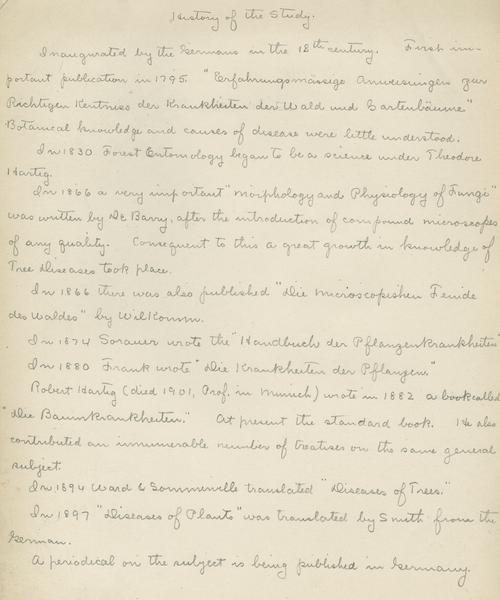 History of the Study.
Inaugurated by the Germans in the 18th century. First im-
portant publication in 1795. "Erfahrungsmässige Anweisungen zur
Richtigen Kentniss der Krankheiten der Wald und Gartenbäume"
Botanical knowledge and causes of disease were little understood.
In 1830 Forest Entomology began to be a science under Theodore
Hartig.
In 1866 a very important "Morphology and Physiology of Fungi"
was written by De Barry, after the introduction of compound microscopes
of any quality. Consequent to this a great growth in knowledge of
Tree Diseases took place.
In 1866 there was also published "Die Microscopishen Feinde
des Waldes" by Wilkomm.
In 1874 Sorauer wrote the "Handbuch der Pflanzenkrankheiten"
In 1880 Frank wrote "Die Krankheiten der Pflanzen."
Robert Hartig (died 1901, Prof. in Munich) wrote in 1882 a book called
"Die Baumkrankheiten." At present the standard book. He also
contributed an innumerable number of treatises on the same general
subject.
In 1894 Ward & Sommerville translated "Diseases of Trees."
In 1897 "Diseases of Plants" was translated by Smith from the
German.
A periodical on the subject is being published in Germany.